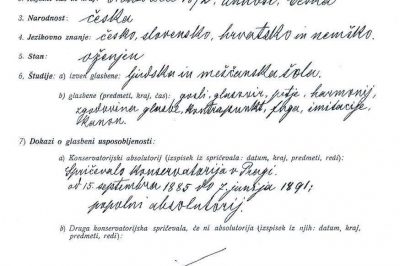 3. Narodnost: češka
4. Jezikovno znanje: češko, slovensko, hrvatsko in nemško.
5. Stan: oženjen
6. Študije: a) izven glasbene: ljudska in meščanska šola.
b) glasbene (predmeti, kraj, čas): gosli, glasovir, petje, harmonij,
zgodovina glasbe, kontrapunkt, fuga, imitacije,
kanon.
7) Dokazi o glasbeni usposobljenosti:
a) Konservatorijski absolutorij (izspisek iz spričevala: datum, kraj, predmeti, redi):
Spričevalo konservatorija v Pragi
od 15. septembra 1885 do 7. junija 1891;
popolni absolutorij.
b) Druga konservatorijska spričevala, če ni absolutorija (izspisek iz njih: datum, kraj,
predmeti, redi):